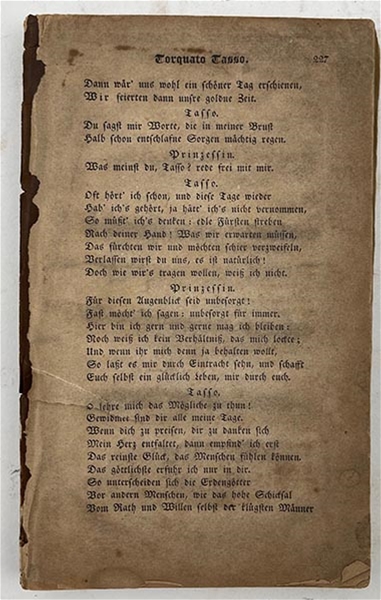 Torquato Tasso. 227
Dann wär' uns wohl ein schöner Tag erschienen,
Wir feierten dann unsre goldne Zeit.
Tasso.
Du sagst mir Worte, die in meiner Brust
Halb schon entschlafne Sorgen mächtig regen.
Prinzessin.
Was meinst du, Tasso? rede frei mit mir.
Tasso.
Oft hört' ich schon, und diese Tage wieder
Hab' ich's gehört, ja hätt' ich's nicht vernommen,
So müßt' ich's denken: edle Fürsten streben
Nach deiner Hand! Was wir erwarten müssen,
Das fürchten wir und möchten schier verzweifeln,
Verlassen wirst du uns, es ist natürlich!
Doch wie wir's tragen wollen, weiß ich nicht.
Prinzessin.
Für diesen Augenblick seid unbesorgt!
Fast möcht' ich sagen: unbesorgt für immer.
Hier bin ich gern und gerne mag ich bleiben:
Noch weiß ich kein Verhältniß, das mich locke;
Und wenn ihr mich denn ja behalten wollt,
So laßt es mir durch Eintracht sehn, und schafft
Euch selbst ein glücklich Leben, mir durch euch.
Tasso.
O lehre mich das Mögliche zu thun!
Gewidmet sind dir alle meine Tage.
Wenn dich zu preisen, dir zu danken sich
Mein Herz entfaltet, dann empfind' ich erst
Das reinste Glück, das Menschen fühlen können.
Das göttlichste erfuhr ich nur in dir.
So unterscheiden sich die Erdengötter
Vor andern Menschen, wie das hohe Schicksal
Vom Rath und Willen selbst der klügsten Männer